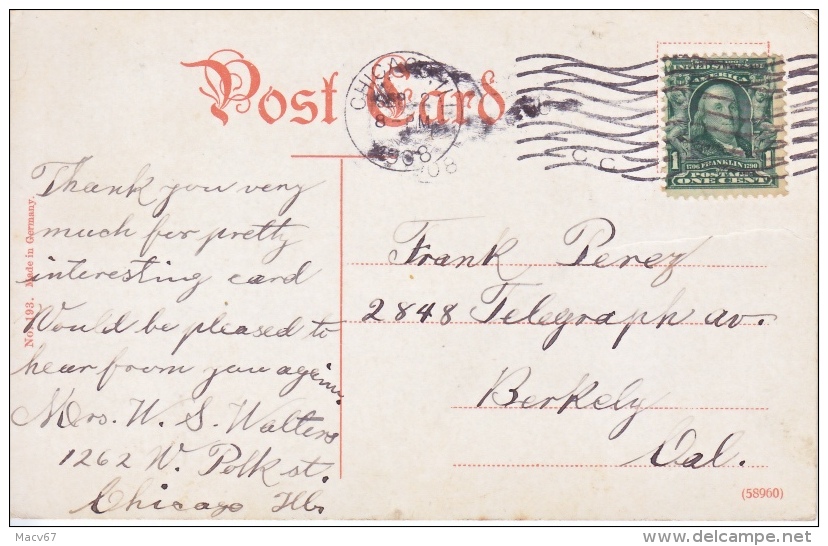 Post Card
CHICAGO, I
8 PM
1908
UNITED STATES OF
AMERICA
1 1706 FRANKLIN 1790 1
POSTAGE
ONE CENT
C C
Thank you very
much for pretty
interesting card
Would be pleased to
hear from you again.
Mrs. W. S. Walters
1262 W. Polk st.
Chicago Ills.
Frank Perez
2848 Telegraph av.
Berkely
Cal.
No. 193. Made in Germany.
(58960)
Macv67
delcampe.net